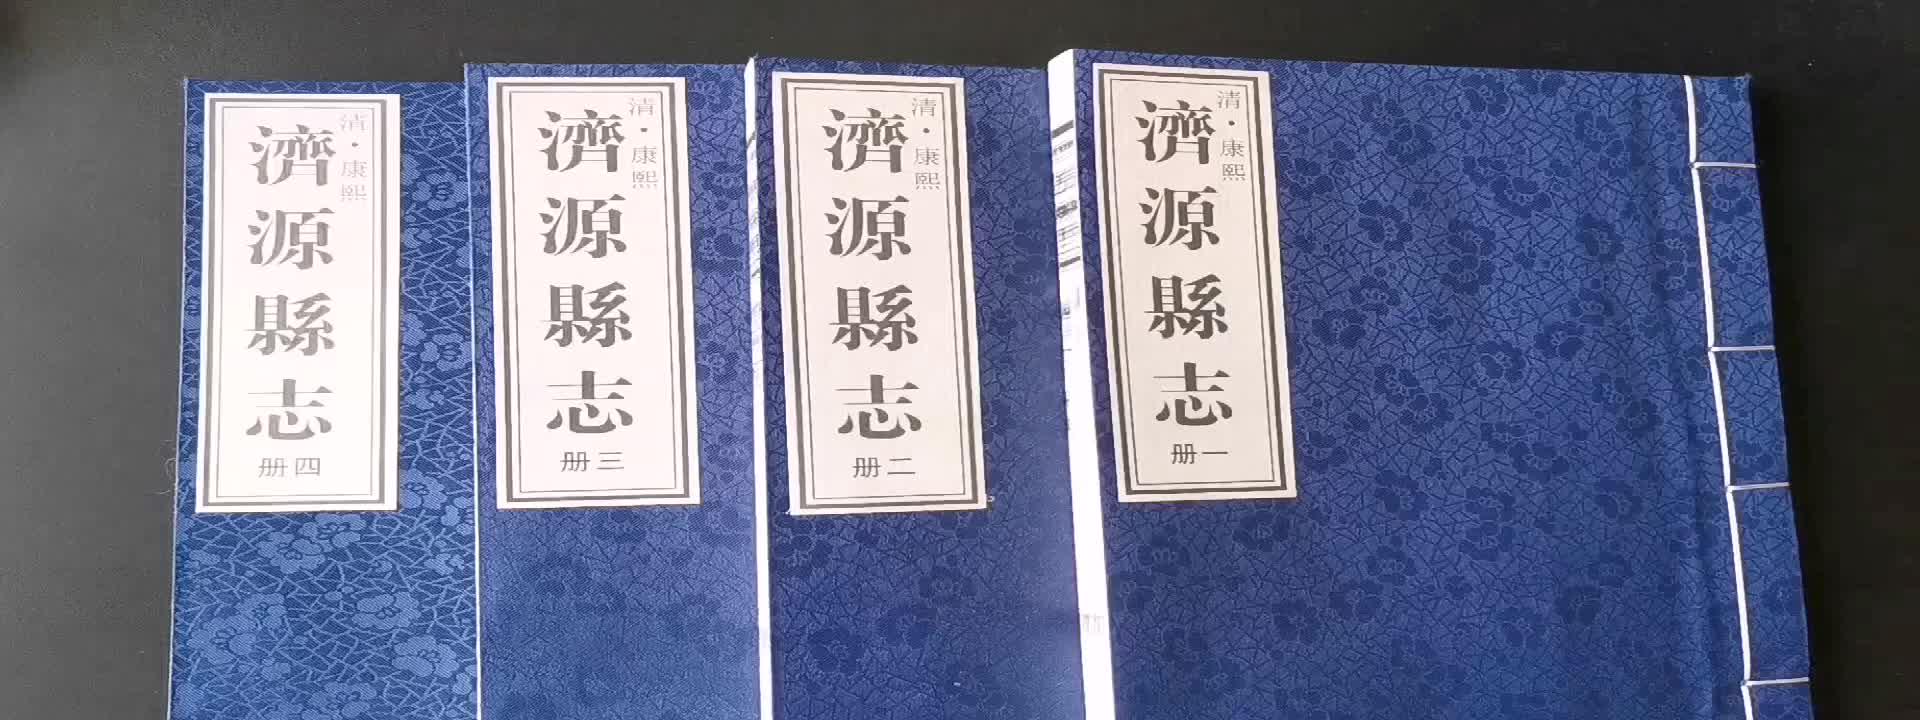 清·康熙
濟源縣志
一册
清·康熙
濟源縣志
二册
清·康熙
濟源縣志
三册
清·康熙
濟源縣志
四册